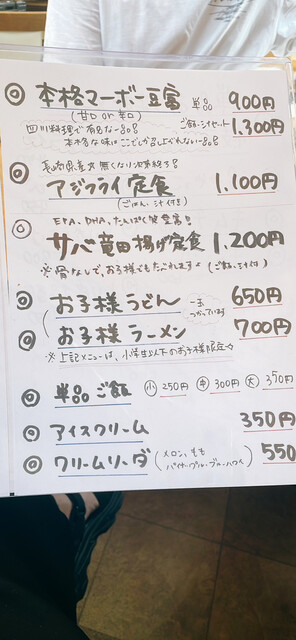 ◎ 本格マーボー豆腐 単品 900円
(甘口 or 辛口)
四川料理で有名な一品!! ご飯・汁セット 1,300円
本格的な味はここでしか召し上がれない一品!!
長崎県産 無くなり次第終了!!
◎ アジフライ定食 1,100円
(ごはん・汁付き)
EPA、DHA、たんぱく質豊富!
◎ サバ竜田揚げ定食 1,200円
※骨なしで、お子様でもたべれます♪ (ご飯・汁付)
◎ お子様うどん 650円
◎ お子様ラーメン 700円
つかっています
※上記メニューは、小学生以下のお子様限定
◎ 単品ご飯 小 250円 中 300円 大 350円
◎ アイスクリーム 350円
◎ クリームソーダ (メロン、もも 550
パイナップル・ブルーハワイ)